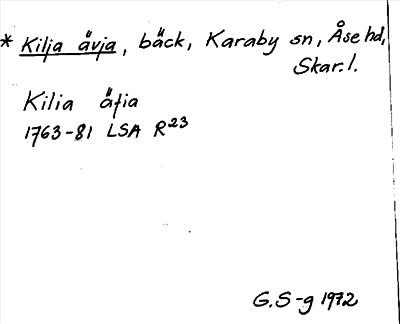 * Kilja ävja, bäck, Karaby sn, Åse hd,
Skar. l.
Kilia äfia
1763-81 LSA R23
G.S-g 1972